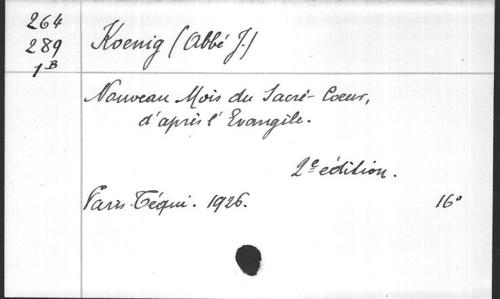 264
289
1B
Koenig (Abbé J.)
Nouveau Mois du Sacré-Coeur,
d'après l'Evangile.
2e édition.
Paris. Téqui. 1926. 16°